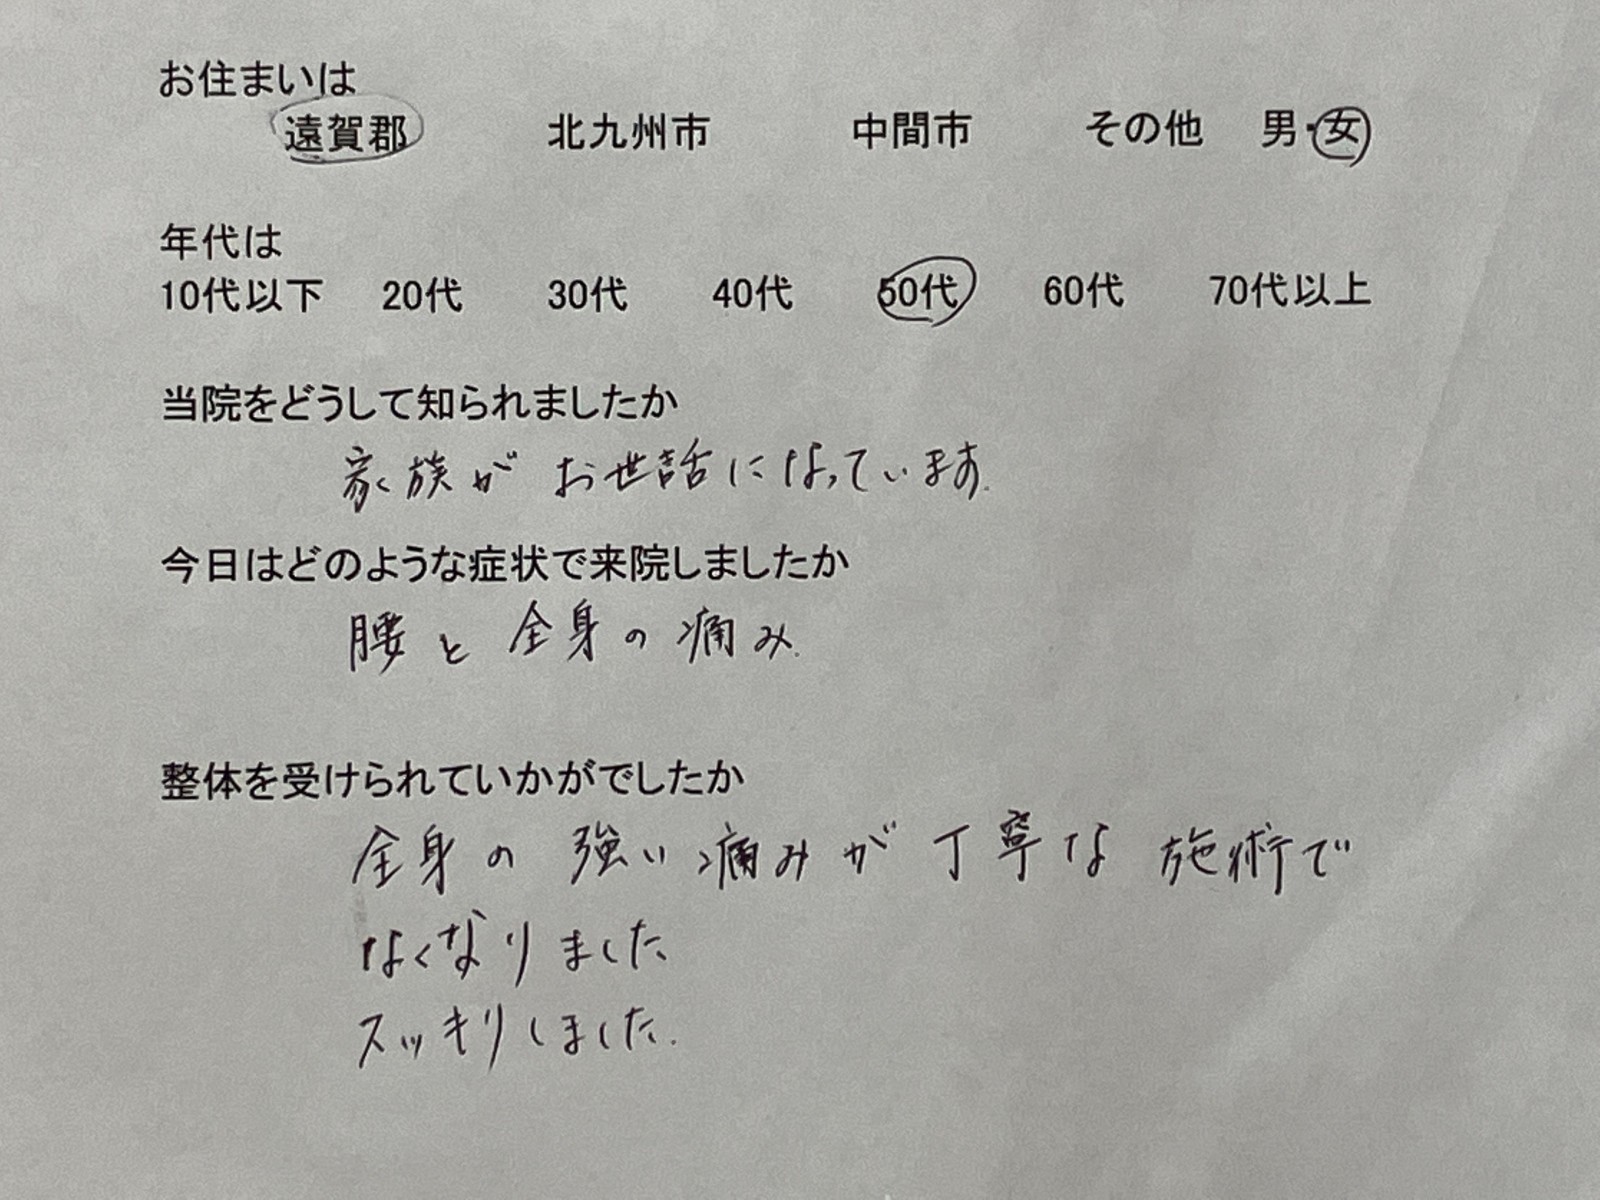 お住まいは
遠賀郡 北九州市 中間市 その他 男・女
年代は
10代以下 20代 30代 40代 50代 60代 70代以上
当院をどうして知られましたか
家族がお世話になっています.
今日はどのような症状で来院しましたか
腰と全身の痛み.
整体を受けられていかがでしたか
全身の強い痛みが丁寧な施術で
なくなりました
スッキリしました.